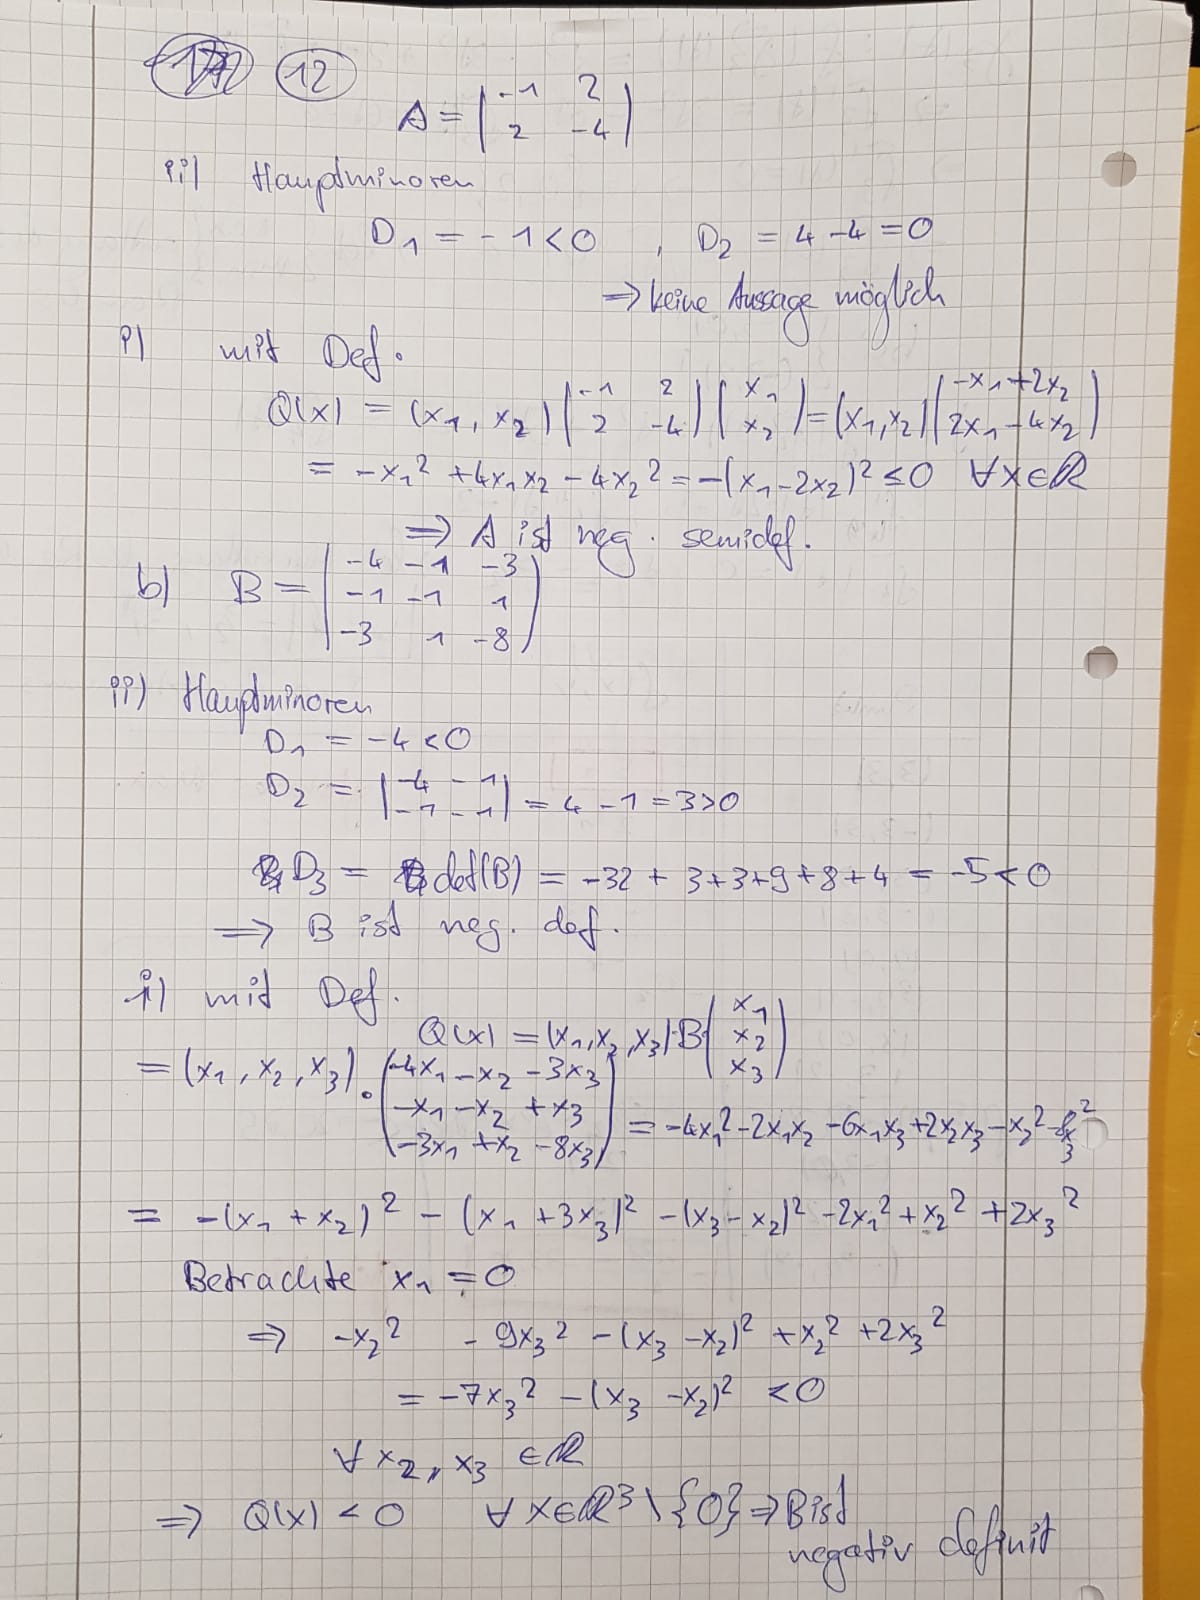 12
A = (-1 2
2 -4)
ii) Hauptminoren
D₁ = -1 < 0 , D₂ = 4 - 4 = 0
⇒ keine Aussage möglich
i) mit Def.
Q(x) = (x₁, x₂) (-1 2 / 2 -4) (x₁ / x₂) = (x₁, x₂) (-x₁ + 2x₂ / 2x₁ - 4x₂)
= -x₁² + 4x₁x₂ - 4x₂² = -(x₁ - 2x₂)² ≤ 0 ∀x∈ℝ
⇒ A ist neg. semidef.
b) B = (-4 -1 -3
-1 -1 1
-3 1 -8)
ii) Hauptminoren
D₁ = -4 < 0
D₂ = |-4 -1 / -1 -1| = 4 - 1 = 3 > 0
D₃ = det(B) = -32 + 3 + 3 + 9 + 8 + 4 = -5 < 0
⇒ B ist neg. def.
i) mit Def.
Q(x) = (x₁, x₂, x₃)·B·(x₁ / x₂ / x₃)
= (x₁, x₂, x₃) · (-4x₁ - x₂ - 3x₃ / -x₁ - x₂ + x₃ / -3x₁ + x₂ - 8x₃) = -4x₁² - 2x₁x₂ - 6x₁x₃ + 2x₂x₃ - x₂² - 8x₃²
= -(x₁ + x₂)² - (x₁ + 3x₃)² - (x₃ - x₂)² - 2x₁² + x₂² + 2x₃²
Betrachte x₁ = 0
⇒ -x₂² - 9x₃² - (x₃ - x₂)² + x₂² + 2x₃²
= -7x₃² - (x₃ - x₂)² < 0
∀ x₂, x₃ ∈ ℝ
⇒ Q(x) < 0 ∀ x∈ℝ³\{0} ⇒ B ist
negativ definit